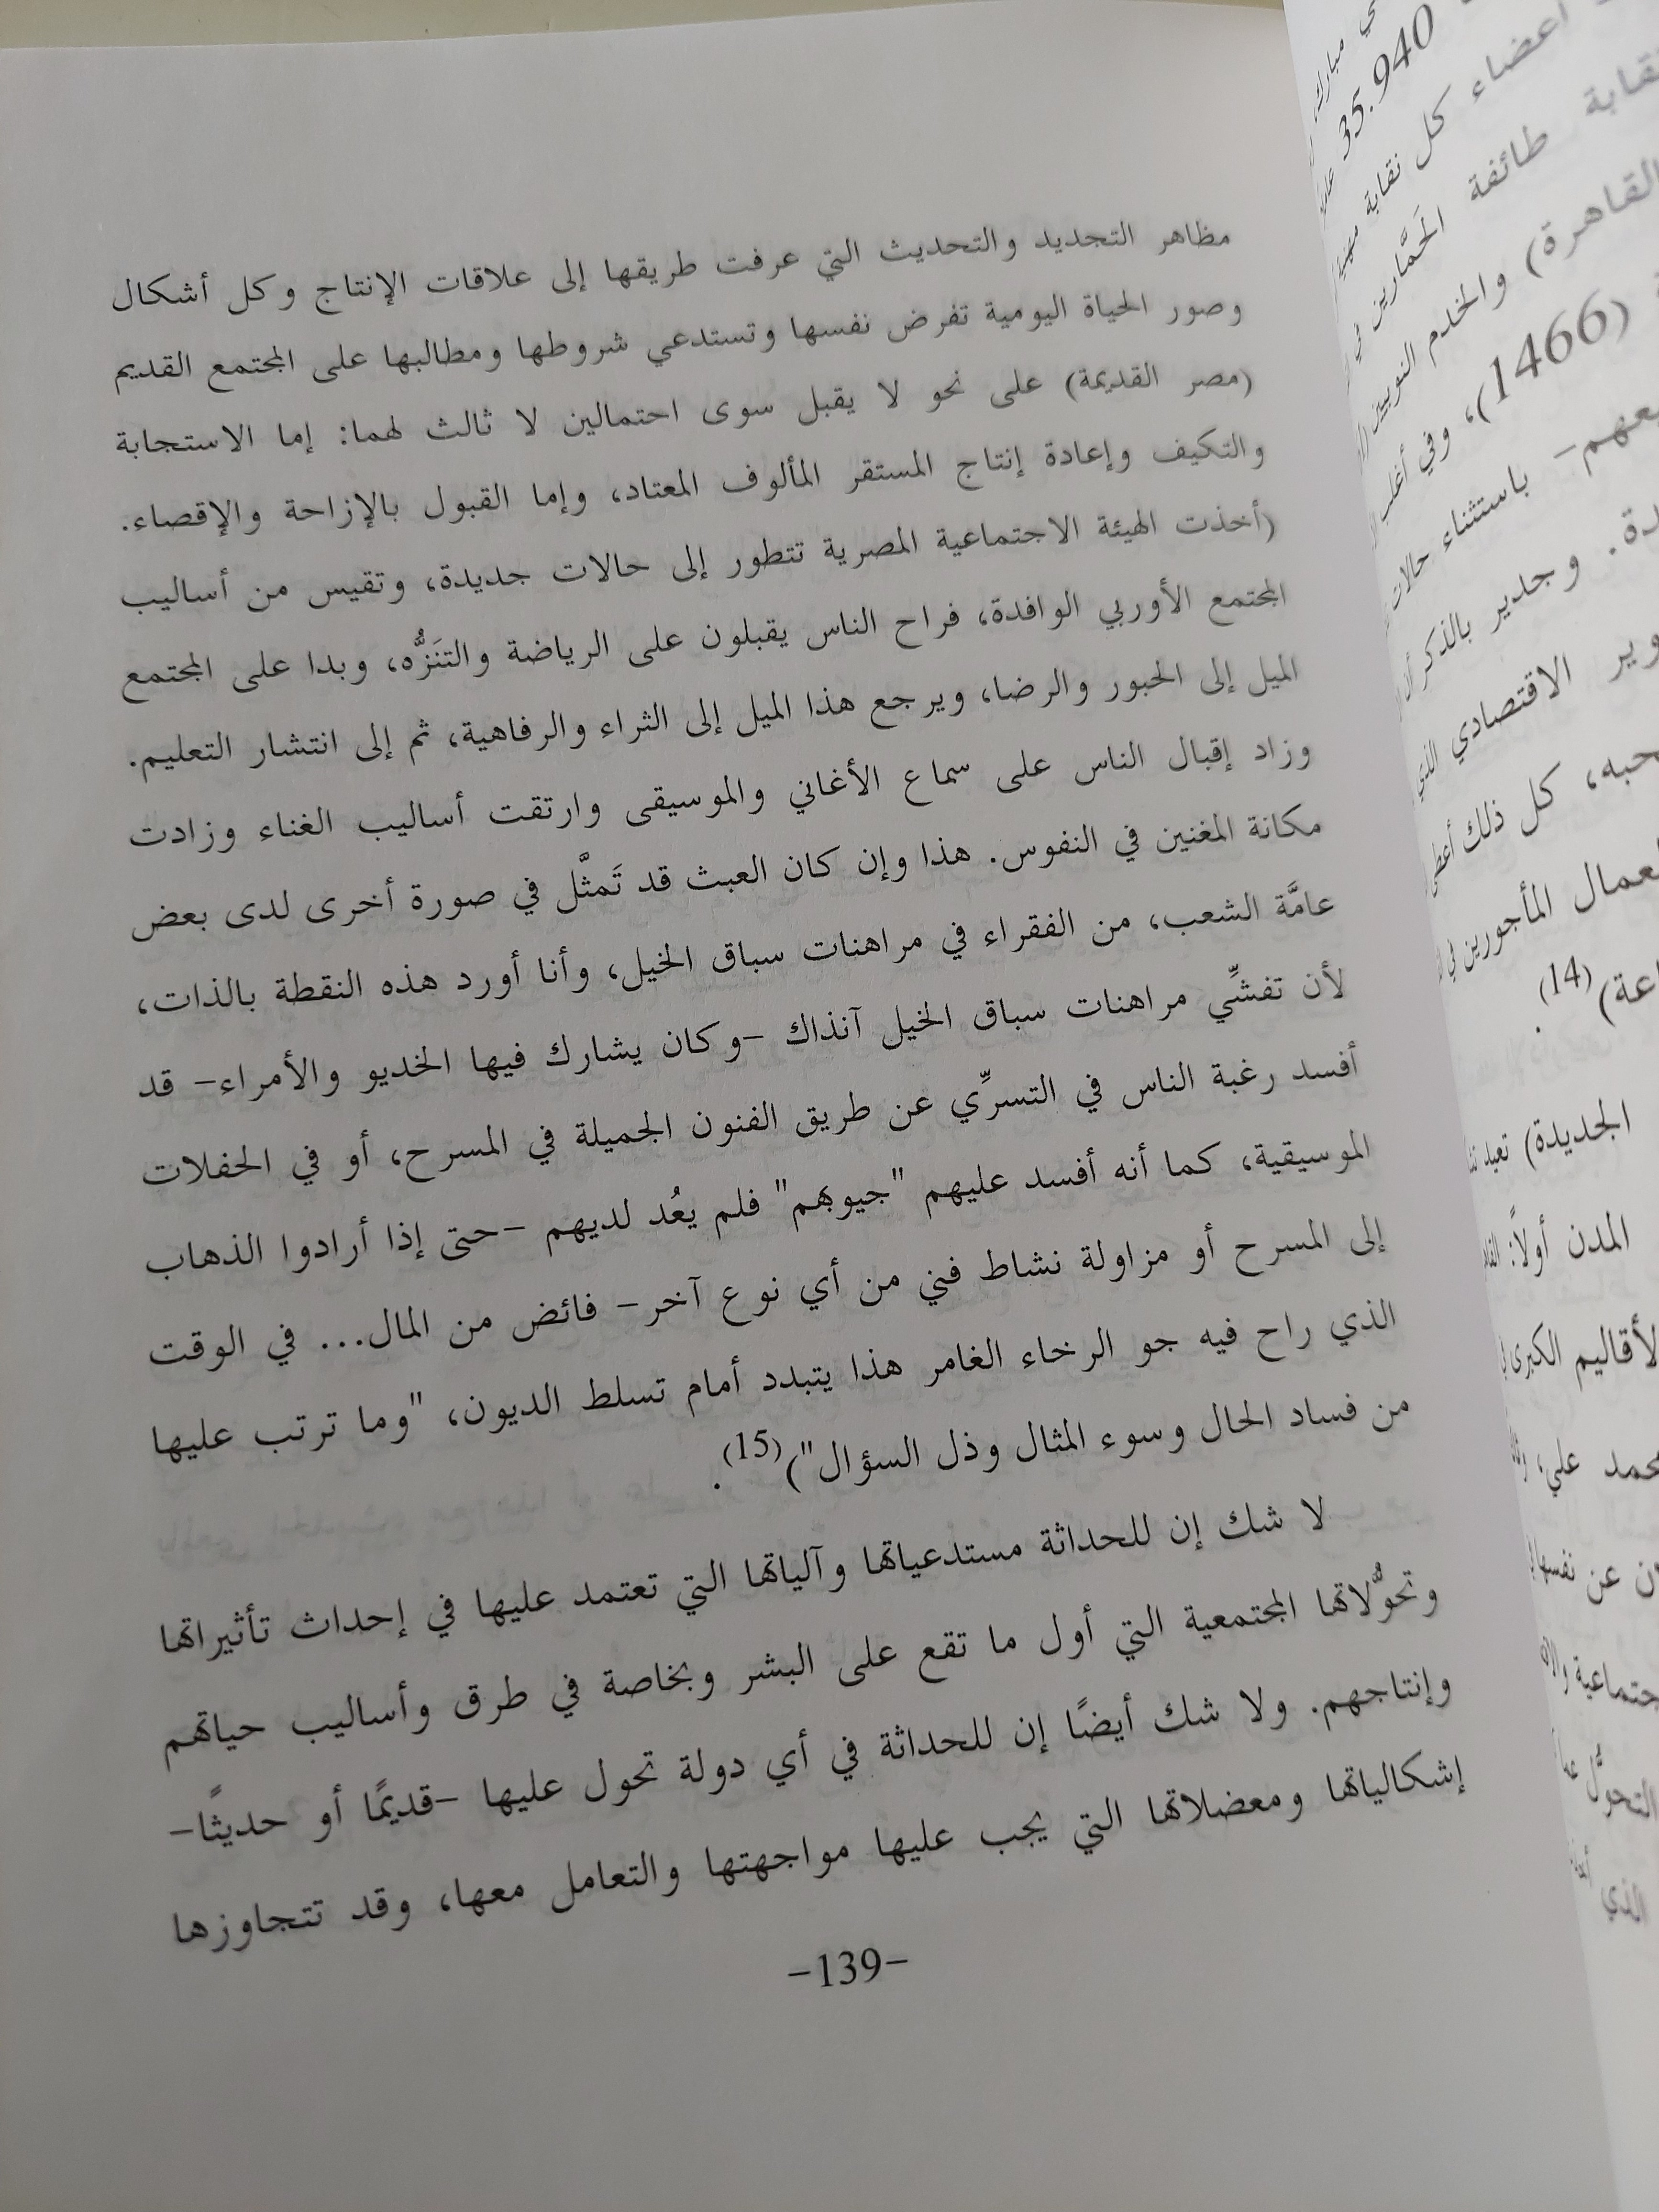 مظاهر التجديد والتحديث التي عرفت طريقها إلى علاقات الإنتاج وكل أشكال
وصور الحياة اليومية تفرض نفسها وتستدعي شروطها ومطالبها على المجتمع القديم
(مصر القديمة) على نحو لا يقبل سوى احتمالين لا ثالث لهما: إما الاستجابة
والتكيف وإعادة إنتاج المستقر المألوف المعتاد، وإما القبول بالإزاحة والإقصاء.
(أخذت الهيئة الاجتماعية المصرية تتطور إلى حالات جديدة، وتقيس من أساليب
المجتمع الأوربي الوافدة، فراح الناس يقبلون على الرياضة والتنَزُّه، وبدا على المجتمع
الميل إلى الحبور والرضا، ويرجع هذا الميل إلى الثراء والرفاهية، ثم إلى انتشار التعليم.
وزاد إقبال الناس على سماع الأغاني والموسيقى وارتقت أساليب الغناء وزادت
مكانة المغنين في النفوس. هذا وإن كان العبث قد تَمثَّل في صورة أخرى لدى بعض
عامَّة الشعب، من الفقراء في مراهنات سباق الخيل، وأنا أورد هذه النقطة بالذات،
لأن تفشِّي مراهنات سباق الخيل آنذاك -وكان يشارك فيها الخديو والأمراء- قد
أفسد رغبة الناس في التسرِّي عن طريق الفنون الجميلة في المسرح، أو في الحفلات
الموسيقية، كما أنه أفسد عليهم "جيوبهم" فلم يعُد لديهم -حتى إذا أرادوا الذهاب
إلى المسرح أو مزاولة نشاط فني من أي نوع آخر- فائض من المال... في الوقت
الذي راح فيه جو الرخاء الغامر هذا يتبدد أمام تسلط الديون، "وما ترتب عليها
من فساد الحال وسوء المثال وذل السؤال")(15).
لا شك إن للحداثة مستدعياتها وآلياتها التي تعتمد عليها في إحداث تأثيراتها
وتحوُّلاتها المجتمعية التي أول ما تقع على البشر وبخاصة في طرق وأساليب حياتهم
وإنتاجهم. ولا شك أيضًا إن للحداثة في أي دولة تحول عليها -قديمًا أو حديثًا-
إشكالياتها ومعضلاتها التي يجب عليها مواجهتها والتعامل معها، وقد تتجاوزها
-139-
35.940
أعضاء كل نقابة
طائفة الحَمَّارين في
القاهرة) والخدم
(1466)، وفي أغلب
باستثناء حالات
وجدير بالذكر أن
الاقتصادي الذي
كل ذلك أعطى
المأجورين في
(14).
الجديدة) تعيد
المدن أولاً:
الكبرى
علي،
عن نفسها
الذي